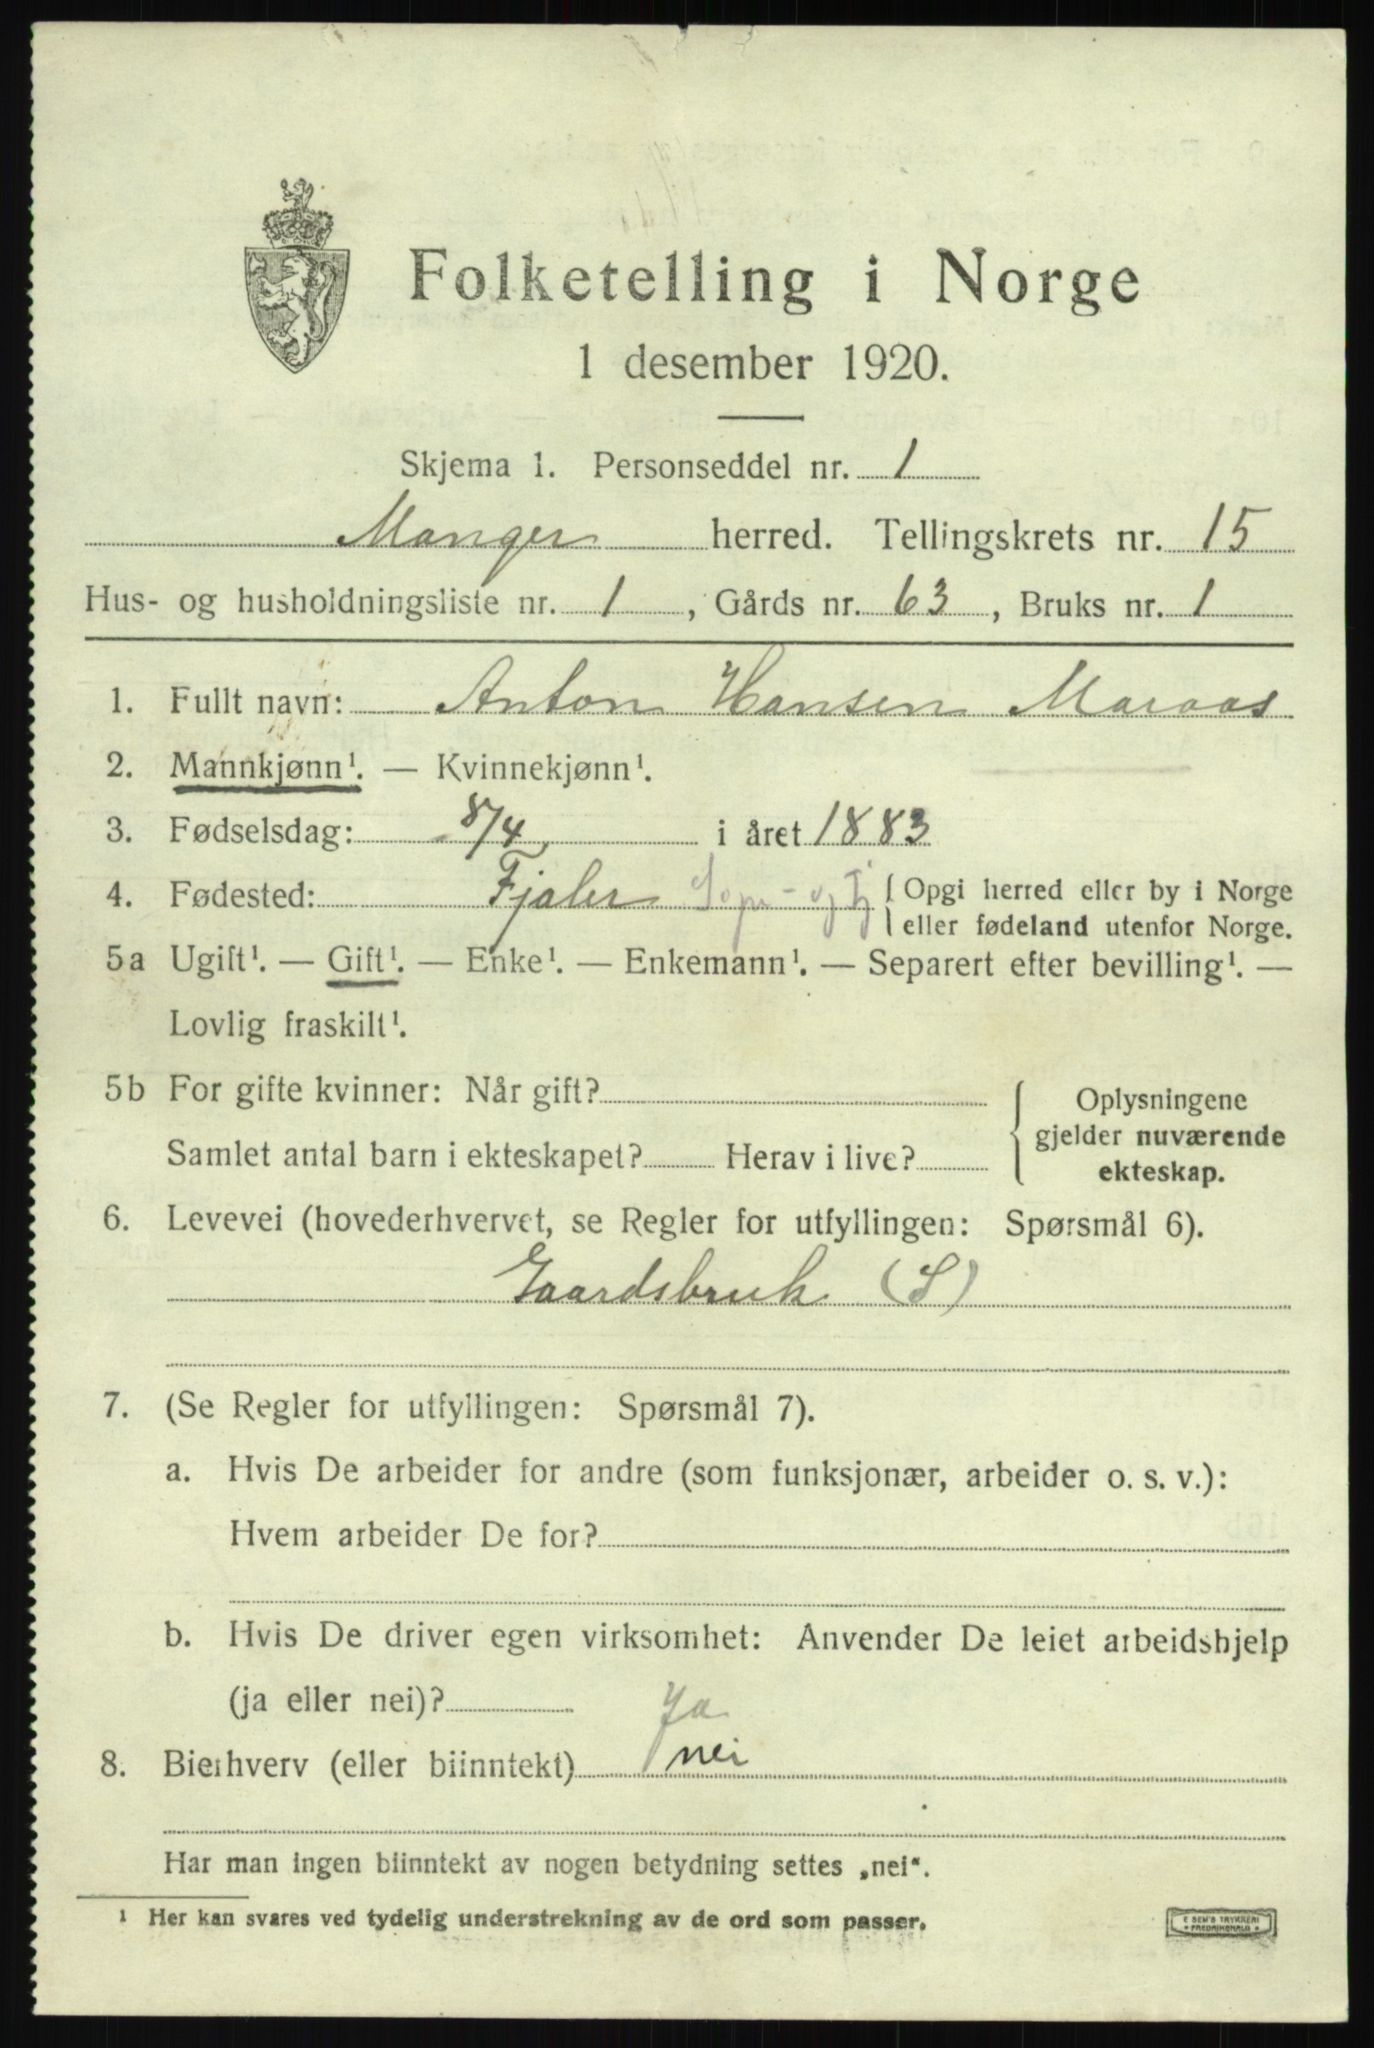 Folketelling i Norge
1 desember 1920.
Skjema 1. Personseddel nr. 1
Manger herred. Tellingskrets nr. 15
Hus- og husholdningsliste nr. 1, Gårds nr. 63, Bruks nr. 1
1. Fullt navn: Anton Hansen Maraas
2. Mannkjønn¹. — Kvinnekjønn¹.
3. Fødselsdag: 8/4 i året 1883
4. Fødested: Fjaler Sogn- og Fj { Opgi herred eller by i Norge
eller fødeland utenfor Norge.
5a Ugift¹. — Gift¹. — Enke¹. — Enkemann¹. — Separert efter bevilling¹. —
Lovlig fraskilt¹.
5b For gifte kvinner: Når gift?
Samlet antal barn i ekteskapet? Herav i live?
{ Oplysningene
gjelder nuværende
ekteskap.
6. Levevei (hovederhvervet, se Regler for utfyllingen: Spørsmål 6).
Gaardsbruk (S)
7. (Se Regler for utfyllingen: Spørsmål 7).
a. Hvis De arbeider for andre (som funksjonær, arbeider o. s. v.):
Hvem arbeider De for?
b. Hvis De driver egen virksomhet: Anvender De leiet arbeidshjelp
(ja eller nei)? Ja
8. Bierhverv (eller biinntekt) nei
Har man ingen biinntekt av nogen betydning settes „nei“.
¹ Her kan svares ved tydelig understrekning av de ord som passer.
E SEM'S TRYKKERI
FREDRIKSHALD